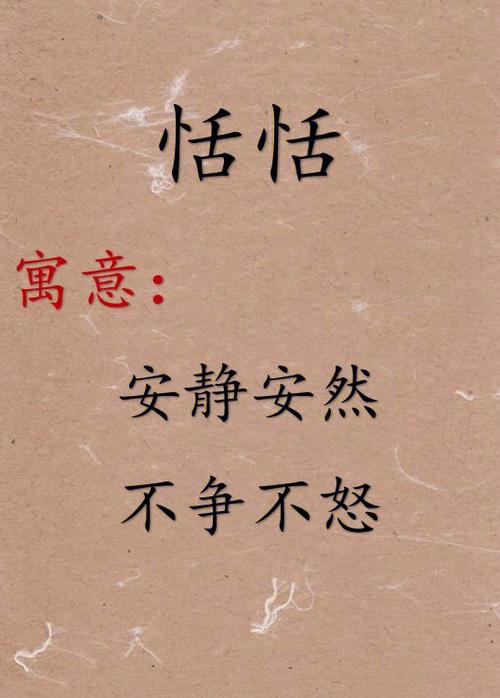 恬恬
寓意：
安静安然
不争不怒